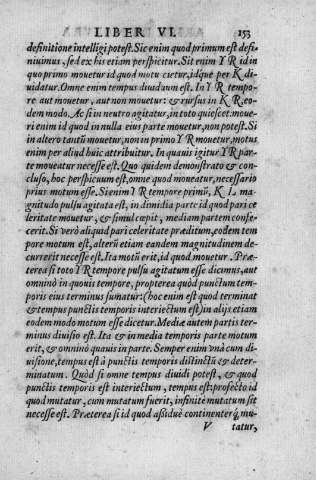 LIBER VI. 253
definitione intelligi potest. Sic enim quod primum est defi-
niuimus, sed ex his etiam perspicitur. Sit enim Y R id in
quo primo mouetur id quod motu cietur, idque per K di-
uidatur. Omne enim tempus diuiduum est. In Y R tempo-
re aut mouetur, aut non mouetur: & rursus in K R, eo-
dem modo. Ac si in neutro agitatur, in toto quiescet: moue-
ri enim id quod in nulla eius parte mouetur, non potest. Si
in altero tantũ mouetur, non in primo Y R mouetur, motus
enim per aliud huic attribuitur. In quauis igitur Y R par-
te moueatur necesse est. Quo quidem demonstrato & con-
cluso, hoc perspicuum est, omne quod moueatur, necessario
prius motum esse. Si enim Y R tempore primũ, K L ma-
gnitudo pulsu agitata est, in dimidia parte id quod pari ce
leritate mouetur, & simul cœpit, mediam partem confe-
cerit. Si verò aliquid pari celeritate præditum, eodem tem
pore motum est, alterũ etiam eandem magnitudinem de-
currerit necesse est. Ita motũ erit, id quod mouetur. Præ-
terea si toto Y R tempore pulsu agitatum esse dicimus, aut
omnino in quouis tempore, propterea quòd punctum tem-
poris eius terminus sumatur: (hoc enim est quod terminat
& tempus punctis temporis interiectum est) in alijs etiam
eodem modo motum esse dicetur. Mediæ autem partis ter-
minus diuisio est. Ita & in media temporis parte motum
erit, & omnino quauis in parte. Semper enim vnà cum di-
uisione, tempus est à punctis temporis distinctũ & deter-
minatum. Quòd si omne tempus diuidi potest, & quod
punctis temporis est interiectum, tempus est: profectò id
quod mutatur, cum mutatum fuerit, infinitè mutatum sit
necesse est. Præterea si id quod assiduè continenterq́; mu-
V tatur,